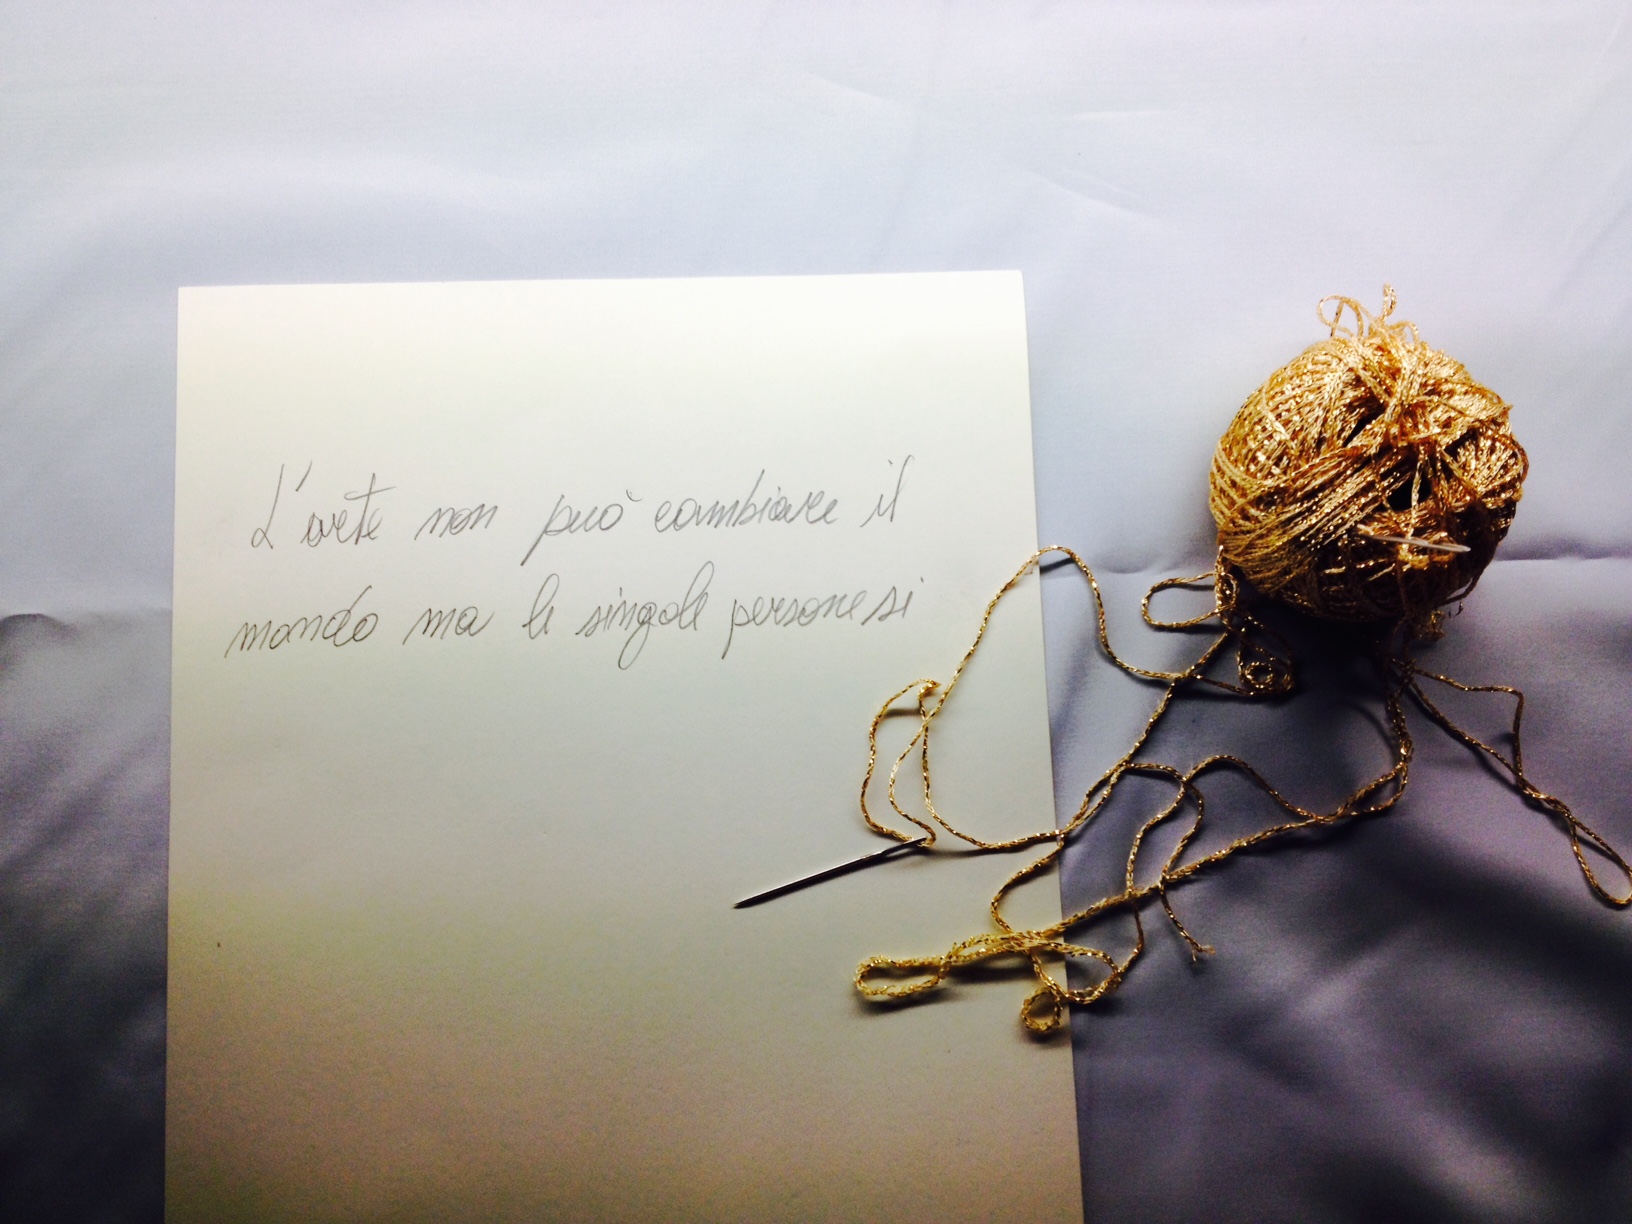 L'arte non può cambiare il
mondo ma le singole persone si